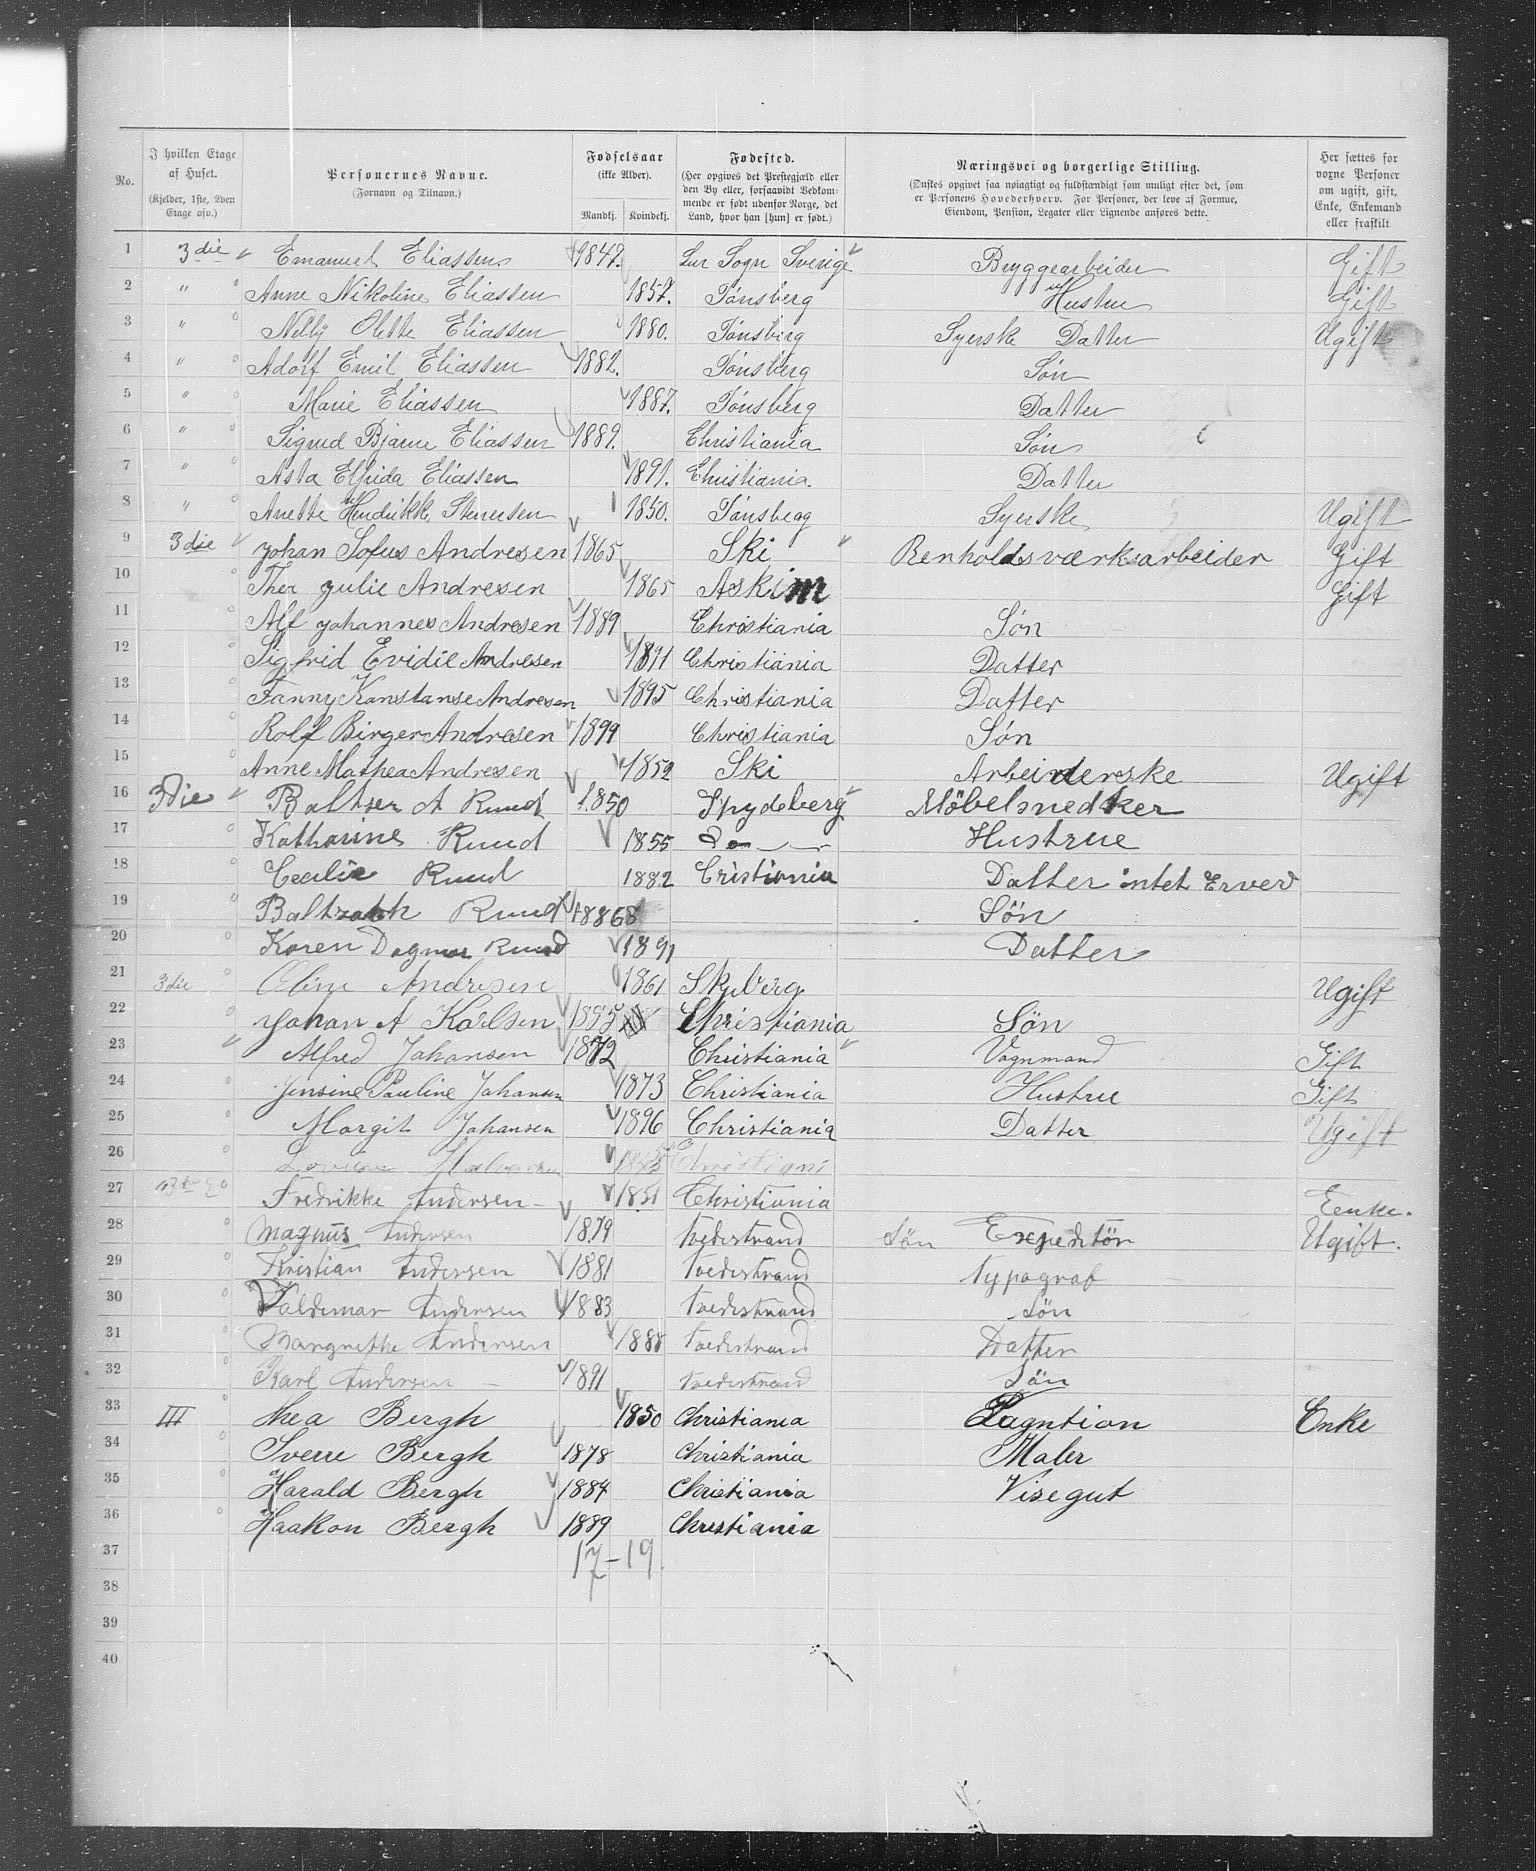 No. | I hvilken Etage af Huset. (Kjelder, 1ste, 2den Etage osv.) | Personernes Navne. (Fornavn og Tilnavn.) | Fødselsaar (ikke Alder). Mandkj. Kvindekj. | Fødested. (Her opgives det Prestegjæld eller den By eller, forsaavidt Vedkommende er født udenfor Norge, det Land, hvor han [hun] er født.) | Næringsvei og borgerlige Stilling. (Ønskes opgivet saa nøiagtigt og fuldstændigt som muligt efter det, som er Personens Hovederhverv. For Personer, der leve af Formue, Eiendom, Pension, Legater eller Lignende anføres dette. | Her sættes for vorne Personer om ugift, gift, Enke, Enkemand eller fraskilt
1 3die " Emanuel Eliassen 1847. Lur Sogn Sverige " Bryggearbeider Gift
2 " Anne Nikoline Eliassen 1857. Tønsberg Hustru Gift
3 " Nelly Olette Eliassen 1880. Tønsberg Syerske Datter Ugift
4 " Adolf Emil Eliassen 1882. Tønsberg Søn
5 " Marie Eliassen 1887. Tønsberg Datter
6 " Sigurd Bjarne Eliassen 1889. Christiania Søn
7 " Asta Elfrida Eliassen 1891. Christiania. Datter
8 " Anette Hendrikke Stenersen 1850. Tønsberg Syerske Ugift
9 3die " Johan Sofus Andresen 1865 Ski " Renholdsværksarbeider Gift
10 Thea Julie Andresen 1865 Askim Gift
11 Alf Johannes Andresen 1889 Christiania Søn
12 Sigfrid Evidie Andresen 1891 Christiania Datter
13 Fanny Konstanse Andresen 1895 Christiania Datter
14 Rolf Birger Andresen 1899 Christiania Søn
15 Anne Mathea Andresen 1852 Ski Arbeiderske Ugift
16 3die " Baltser A Ruud 1850 Spydeberg " Möbelsnedker
17 Katharine Ruud 1855 Do Hustrue
18 Cecilie Ruud 1882 Cristiania Datter intet Erverv
19 " Ruud Sön
20 Karen Dagmar Ruud 1891 Datter
21 3die Oline Andresen 1861 Ugift
22 Johan A Karlsen 1895 Christiania Sön
23 " Alfred Johansen 1872 Christiania " Vognmand Gift
24 Jensine Pauline Johansen 1873 Christiania Hustru Gift
25 Margit Johansen 1896 Christiania Datter Ugift
26 Christiani
27 Fredrikke Andersen 1851 Christiania Eenke.
28 Magnus Andersen 1879 tvedestrand Sön Expeditör Ugift.
29 Kristian Andersen 1881 tvedestrand typograf
30 Valdemar Andersen 1883 tvedestrand Sön
31 Margrethe Andersen 1888 tvedestrand Datter
32 Karl Andersen 1891 tvedestrand Sön
33 III thea Bergh 1850 Christiania Enke
34 Sverre Bergh 1878 Christiania Maler
35 Harald Bergh 1884 Christiania Visegut
36 Haakon Bergh 1889 Christiania
37 17-19.
38
39
40